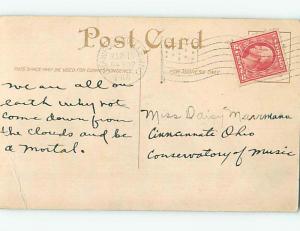 Post Card
THIS SPACE MAY BE USED FOR CORRESPONDENCE.
FOR ADDRESS ONLY.
we are all on
earth why not
come down from
the clouds and be
a mortal.
Miss Daisy Marrmann
Cinnannate Ohio
Conservatory of Music